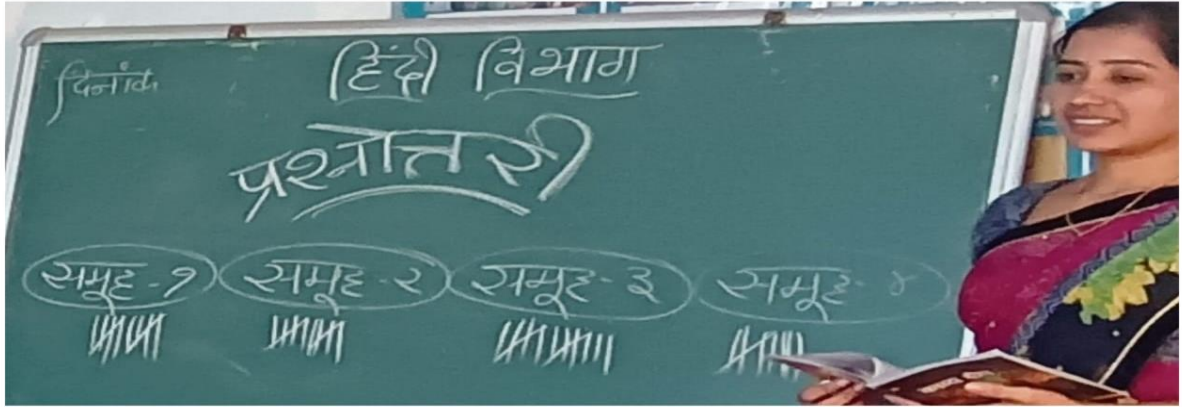 दिनांक
हिंदी विभाग
प्रश्नोत्तरी
समूह-१ समूह-२ समूह-३ समूह-४